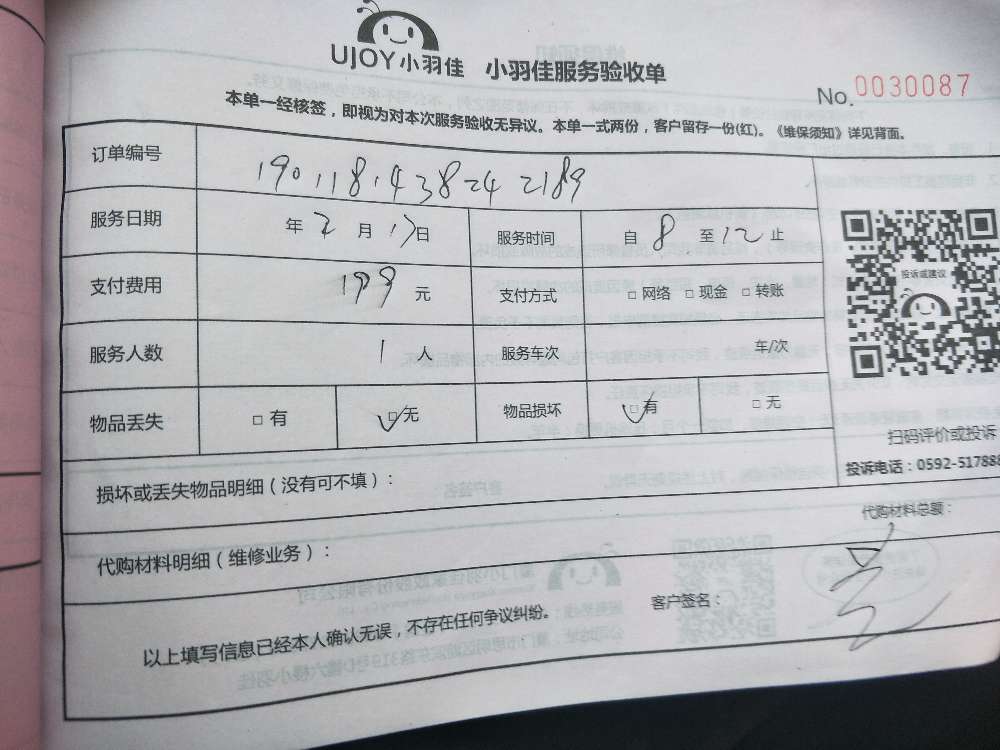 UJOY小羽佳 小羽佳服务验收单
No.0030087
本单一经核签，即视为对本次服务验收无异议。本单一式两份，客户留存一份(红)。《维保须知》详见背面。
订单编号 1901181438242189
服务日期 年2月17日 服务时间 自8至12止
支付费用 199元 支付方式 □网络 □现金 □转账
服务人数 1人 服务车次 车/次
投诉或建议
物品丢失 □有 ☑无 物品损坏 ☑有 □无
扫码评价或投诉
投诉电话：0592-517888
损坏或丢失物品明细（没有可不填）：
代购材料明细（维修业务）： 代购材料总额：
以上填写信息已经本人确认无误，不存在任何争议纠纷。 客户签名：